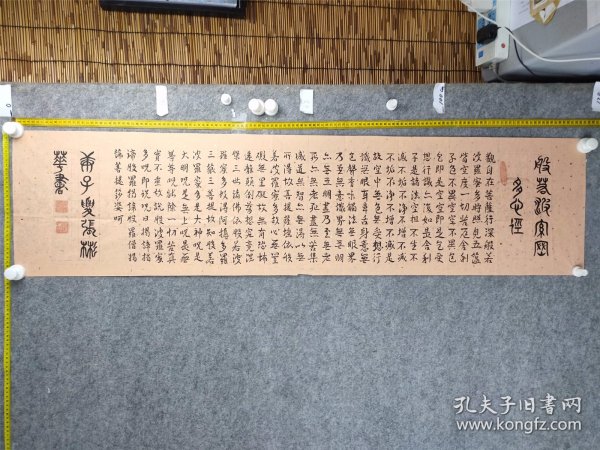 般若波羅蜜
多心經
觀自在菩薩行深般若
波羅蜜多時照見五蘊
皆空度一切苦厄舍利
子色不異空空不異色
色即是空空即是色受
想行識亦復如是舍利
子是諸法空相不生不
滅不垢不淨不增不減
不垢不淨不增不減是
故空中無色無受想行
識無眼耳鼻舌身意無
色聲香味觸法無眼界
乃至無意識界無無明
亦無無明盡乃至無老
死亦無老死盡無苦集
滅道無智亦無得以無
所得故菩提薩埵依般
若波羅蜜多故心無罣
礙無罣礙故無有恐怖
遠離顛倒夢想究竟涅
槃三世諸佛依般若波
羅蜜多故得阿耨多羅
三藐三菩提故知般若
波羅蜜多是大神呪是
大明呪是無上呪是無
等等呪能除一切苦真
實不虛故說般若波羅蜜
多呪即說呪曰揭諦揭
諦般羅揭諦般羅僧揭
諦菩提莎婆呵
庚子夏張彬
華書
孔夫子旧书网
www.kongfz.com